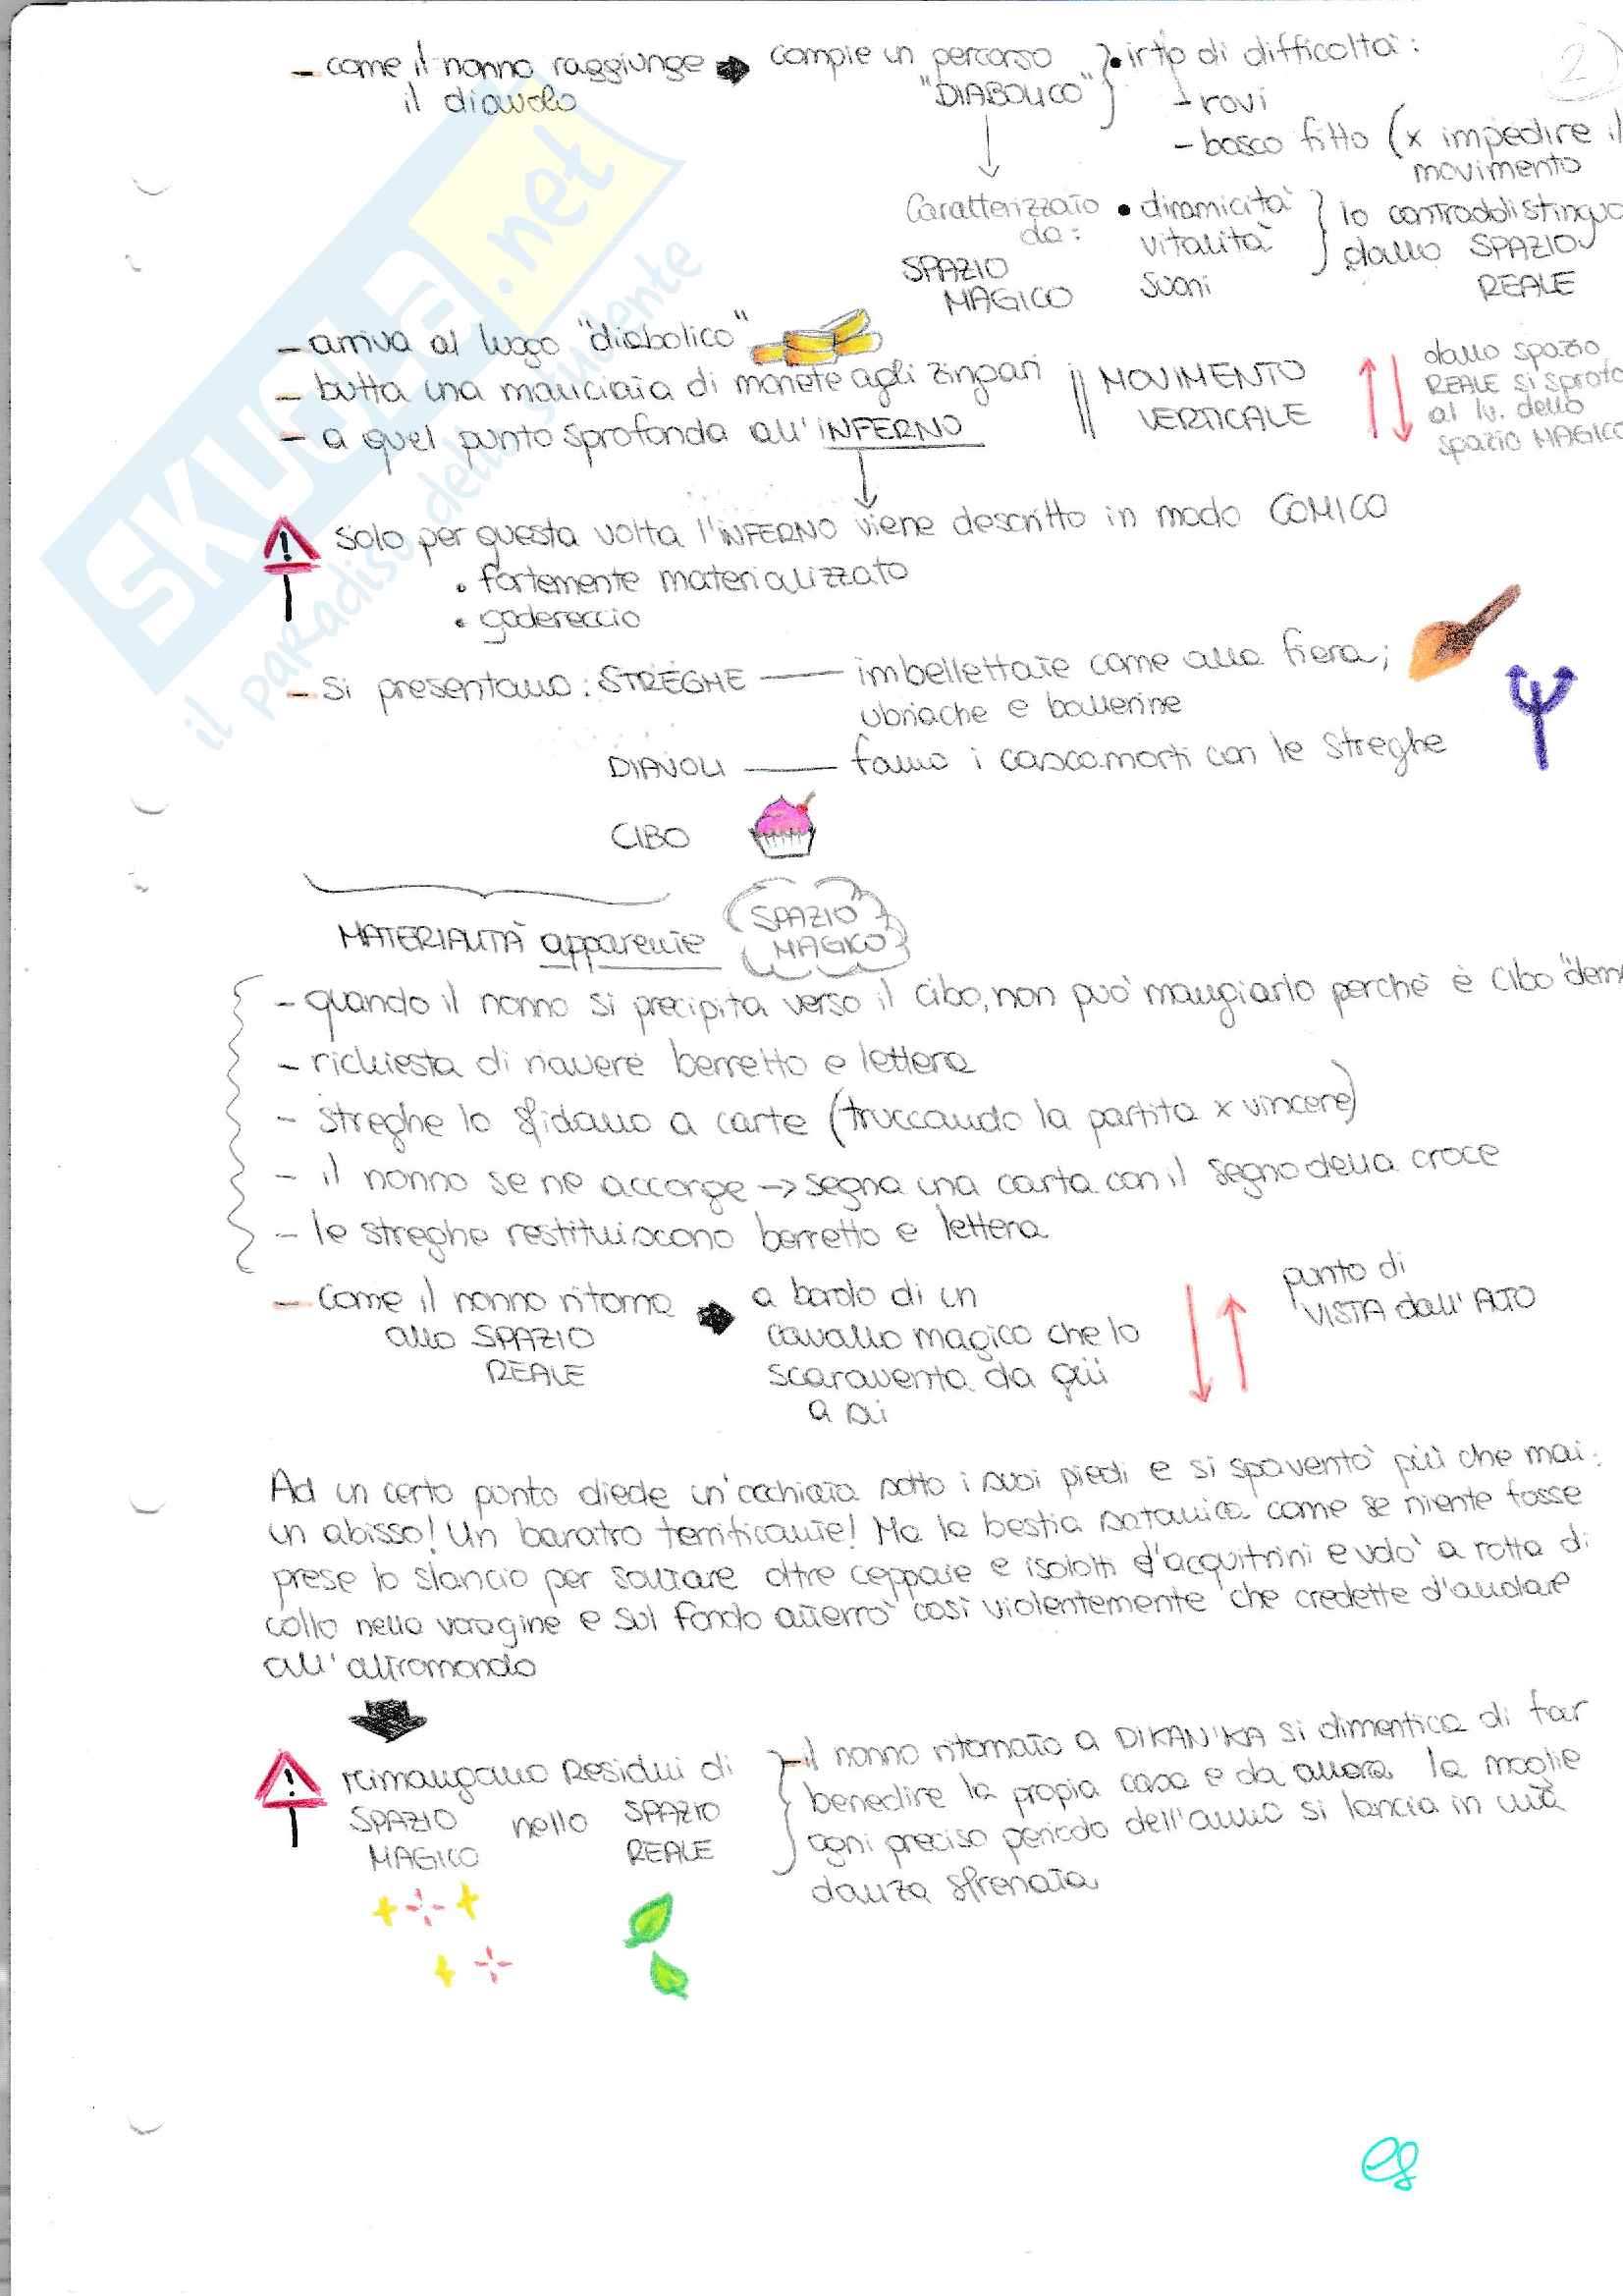 2
- come il nonno raggiunge il diavolo → compie un percorso "DIABOLICO" } • irto di difficoltà:
- rovi
- bosco fitto (x impedire il movimento
Caratterizzato da: • dinamicità } lo contraddistinguo
SPAZIO MAGICO vitalità dallo SPAZIO
suoni REALE
- arriva al luogo "diabolico"
- butta una manciata di monete agli zingari || MOVIMENTO VERTICALE
- a quel punto sprofonda all'INFERNO
dallo spazio
REALE si sprofo
al lv. dello
spazio MAGICO
! solo per questa volta l'INFERNO viene descritto in modo COMICO
• fortemente materializzato
• godereccio
- si presentano: STREGHE — imbellettate come alla fiera;
ubriache e ballerine
DIAVOLI — fanno i cascamorti con le streghe
CIBO
MATERIALITÀ apparente SPAZIO MAGICO
- quando il nonno si precipita verso il cibo, non può mangiarlo perchè è cibo "dem
- richiesta di riavere berretto e lettera
- streghe lo sfidano a carte (truccando la partita x vincere)
- il nonno se ne accorge → segna una carta con il segno della croce
- le streghe restituiscono berretto e lettera
- Come il nonno ritorna → a bordo di un
allo SPAZIO cavallo magico che lo
REALE scaraventa da giù
a su
punto di
VISTA dall'ALTO
Ad un certo punto diede un'occhiata sotto i suoi piedi e si spaventò più che mai:
un abisso! Un baratro terrificante! Ma la bestia satanica come se niente fosse
prese lo slancio per saltare oltre ceppaie e isolotti d'acquitrini e volò a rotta di
collo nella voragine e sul fondo atterrò così violentemente che credette d'andare
all'altromondo
! rimangano Residui di } - il nonno ritornato a DIKAN'KA si dimentica di far
SPAZIO MAGICO nello SPAZIO REALE benedire la propia casa e da allora la moglie
ogni preciso periodo dell'anno si lancia in una
danza sfrenata
SKUOLA.net
il paradiso dello studente